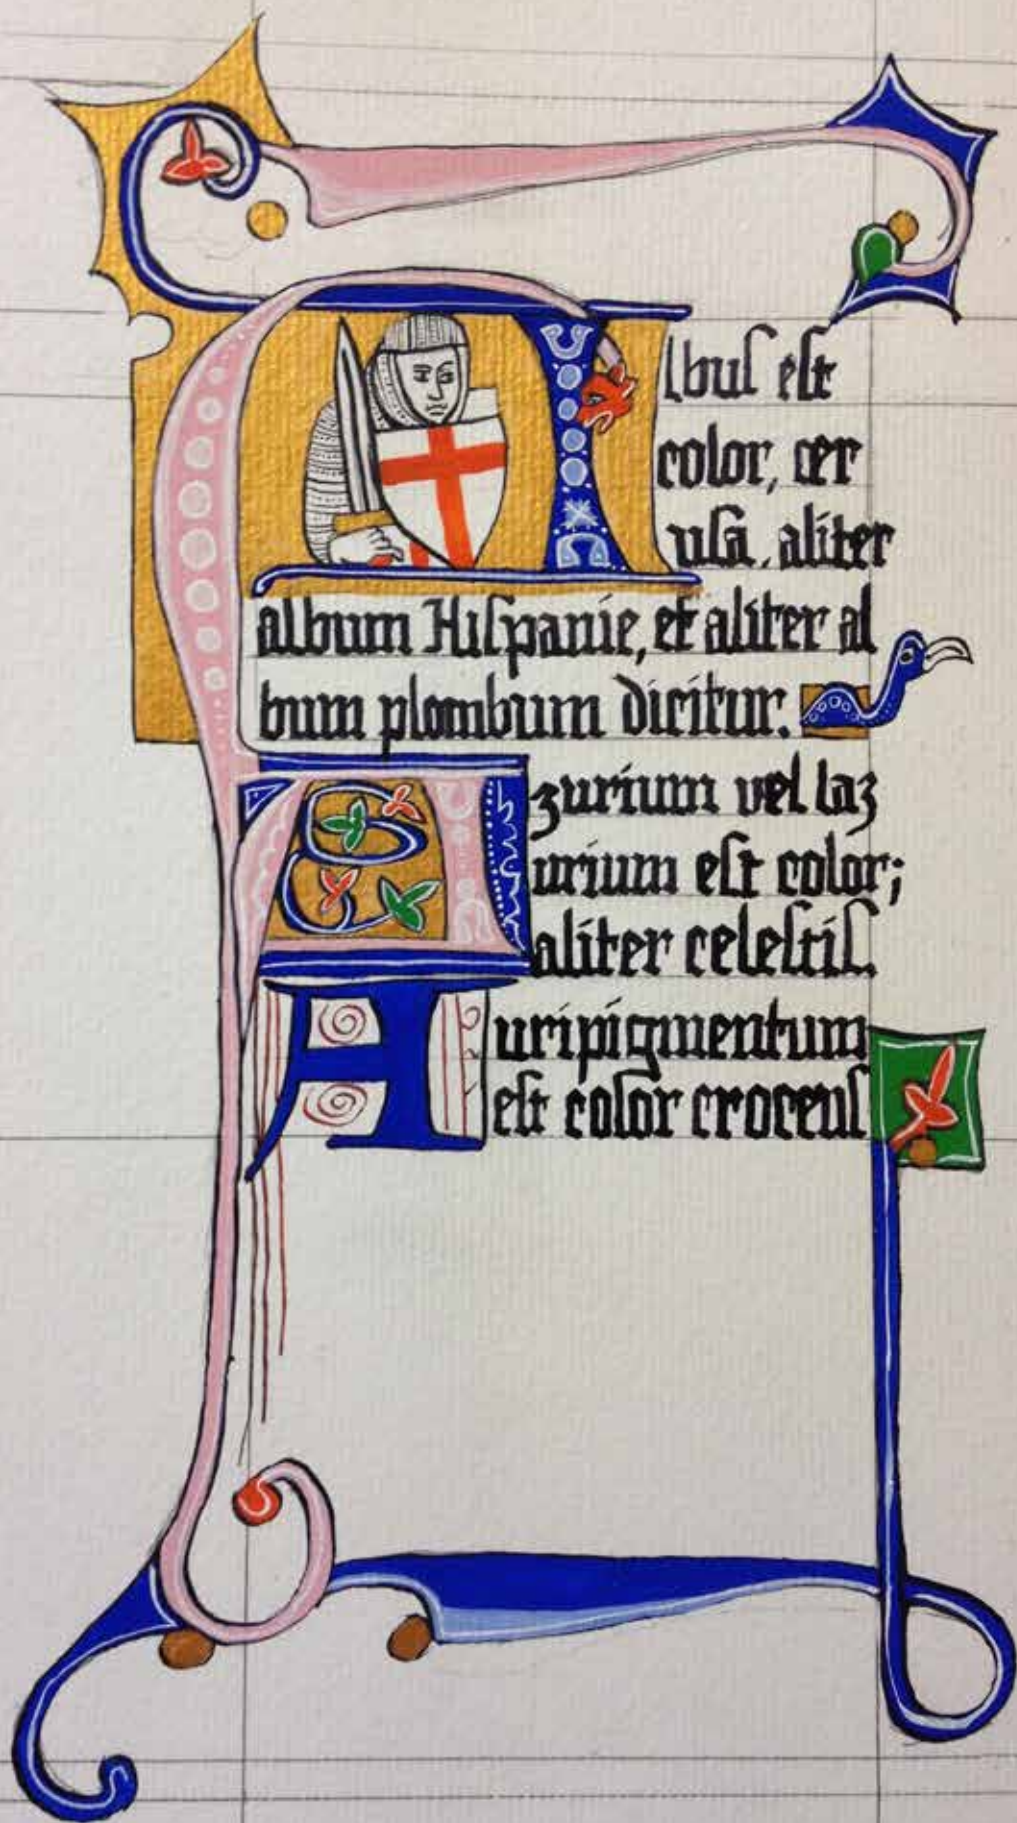 Albuſ eſt
color, cer
uſa, aliter
album Hiſpanie, et aliter al
bum plombum dicitur.
Azurium vel laz
urium eſt color;
aliter celeſtiſ.
Auripigmentum
eſt color croceuſ